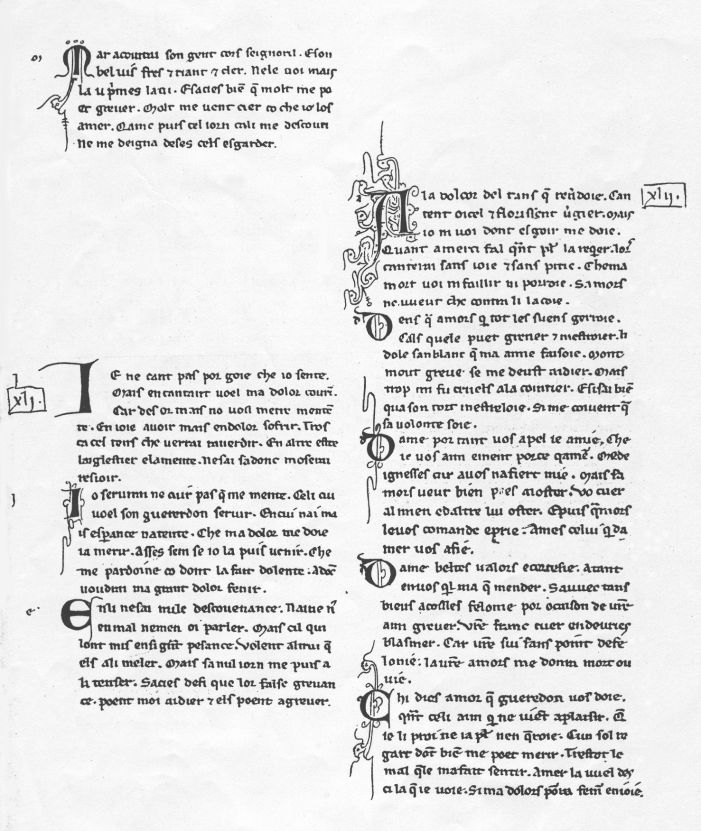 Mar acointai son gent cors seignoril. Eson
bel uis fres ⁊ riant ⁊ cler. Nele uoi mais
la u p̄mes laui. Esacies biē q̄ molt me po
et greuer. Molt me uent cier co che io los
amer. Qainc puis cel iorn cali me descoueri
Ne me deigna deses cels esgarder.
xlj.
IE ne cant pas por goie che io sente.
Mais encantant uoel ma dolor couri.
Car des or mais no uoil metre mente
te. En ioie auoir mais endolor sofrir. Tros
ca cel tens che uerrai rauerdir. En altre este
laiglestier elamente. Nesai sadonc mosterai
resioir.
Io seruirai ne aur pas q̄ me mente. Celi cui
uoel son guererdon seruir. Encui nai ma
is esperance natente. Che ma dolor me doie
ia merir. Asses sem se io la puis uenir. Che
me pardoine co dont la fait dolente. Adoc
uoudrai ma grant dolor fenir.
e.
Ensi nesai mile descouenance. Naiue nr̄
en mal nemen oi parler. Mais cil qui
lont mis ensi grāt pesance. Volent altrui q̄
els ali meler. Mais sa nul iorn me puis a
li tenser. Sacies defi que lor false greuan
ce. poent moi aidier ⁊ els poent agreuer.
xlij.
A la dolcor del tans q̄ rēdoie. Can
tent oicel ⁊ florissent ūgier. Mais
io m uoi dont esgoir me doie.
Quant a merci fal q̄nt pl' la reqer. lors
canterai sans ioie ⁊ sans pitie. Chema
mort uoi m faillir ni porroie. Samors
ne uueut che contra li lacoie.
Dens q̄ amors q̄ tot les suens gerroie.
Cals quele puet greuer ⁊ mestroier. li
dole sanblant q̄ ma amie faisoie. Mont
mout greue se me deust aidier. Mais
trop mi fu cruels ala cointier. Esisai biē
qua son tort mestreloie. Si me couent q̄
sa uolonte soie.
Dame por tant uos apel ie amie. Che
ie uos aim einent porte qamē. Mede
ignesses car auos nafiert mie. Mais sa
mors ueut bien pres aioster. Vo cuer
al mien ebaltre lui oster. Epuis q̄mors
leuos comande eprie. Ames celui q̄ da
mer uos afie.
Dame beltes ualors ecortesie. Atant
enuos ql' ma q̄ mender. Sauuec tans
biens acoilles felonie por ocaison de uost̄
aim greuer. Vost̄ franc cuer endeuries
blasmer. Car uost̄ sui sans point defe
lonie: laure amors me donra mort ou
uie.
Chi dies amor q̄ gueredon uos doie.
q̄nt celi aim q̄ ne uielt aplaisir. E
ie li proi ne ia pl' nen q̄roie. Cun sol re
gart dont biē me poet merir. Trestot le
mal q̄le mafait sentir. Amer la uuel des
ci la q̄ ie uoie. Si ma dolors pora fenir enioie.